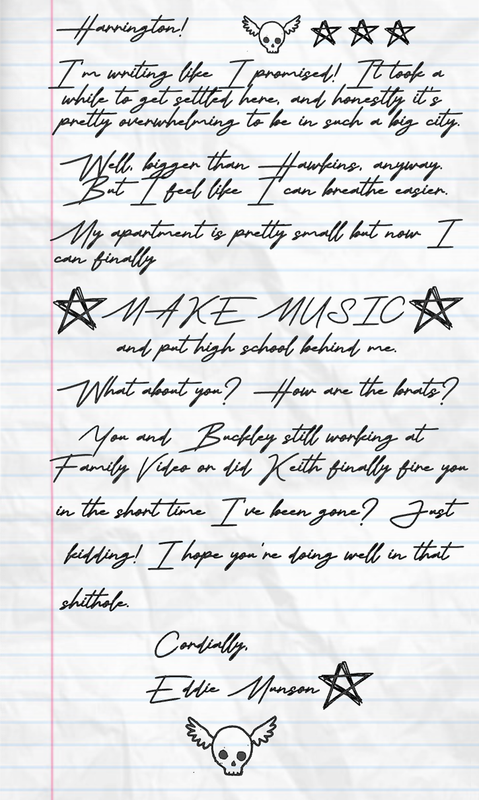 Harrington!
I'm writing like I promised! It took a
while to get settled here, and honestly it's
pretty overwhelming to be in such a big city.
Well, bigger than Hawkins, anyway.
But I feel like I can breathe easier.
My apartment is pretty small but now I
can finally
MAKE MUSIC
and put high school behind me.
What about you? How are the brats?
You and Buckley still working at
Family Video or did Keith finally fire you
in the short time I've been gone? Just
kidding! I hope you're doing well in that
shithole.
Cordially,
Eddie Munson